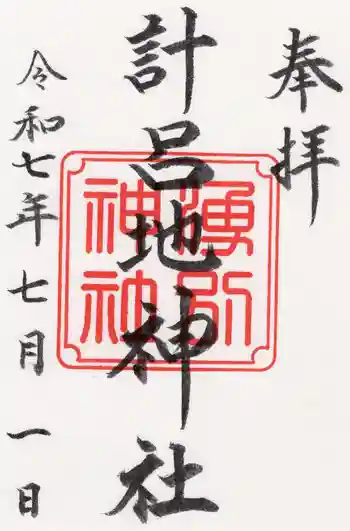 奉拝
計呂地神社
湧別神社
令和七年七月一日